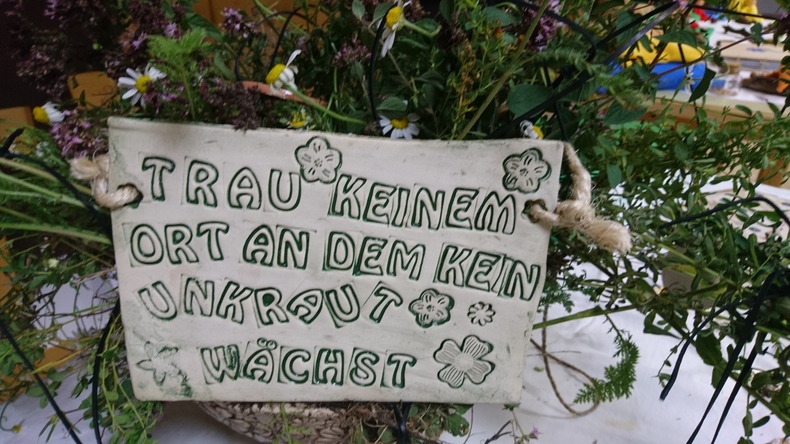 TRAU KEINEM
ORT AN DEM KEIN
UNKRAUT
WÄCHST